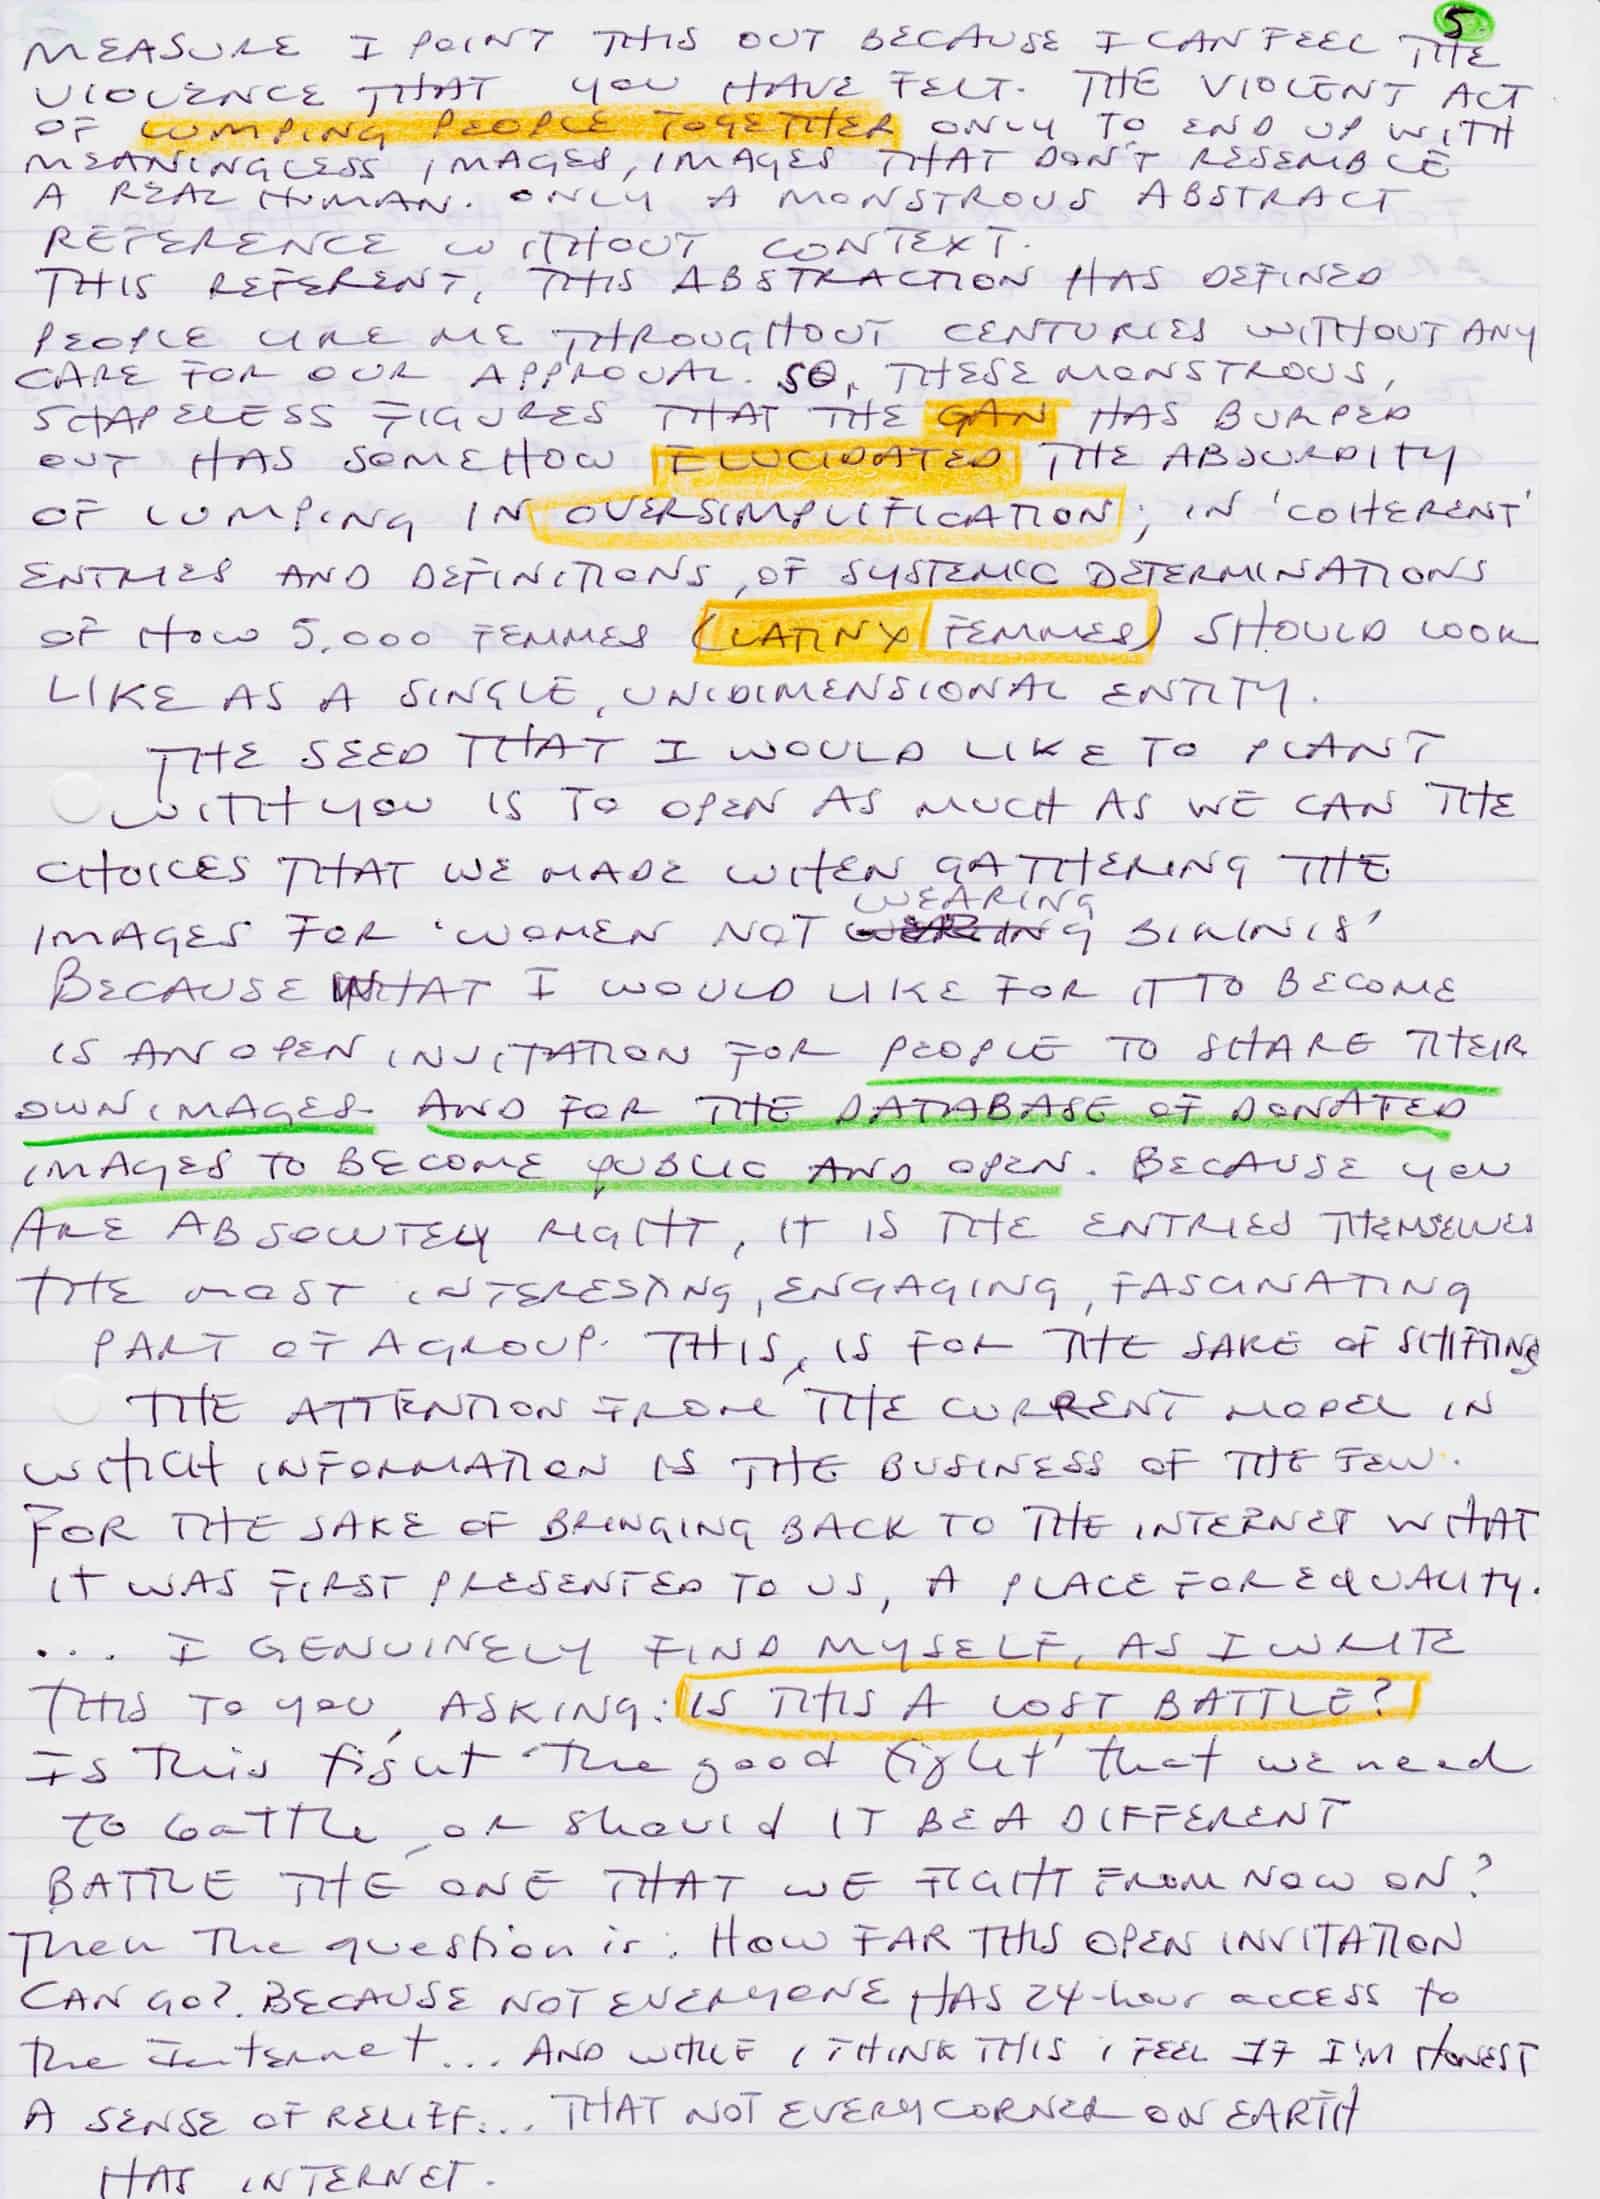 5
MEASURE I POINT THIS OUT BECAUSE I CAN FEEL THE
VIOLENCE THAT YOU HAVE FELT. THE VIOLENT ACT
OF LUMPING PEOPLE TOGETHER ONLY TO END UP WITH
MEANINGLESS IMAGES, IMAGES THAT DON'T RESEMBLE
A REAL HUMAN. ONLY A MONSTROUS ABSTRACT
REFERENCE WITHOUT CONTEXT.
THIS REFERENT, THIS ABSTRACTION HAS DEFINED
PEOPLE LIKE ME THROUGHOUT CENTURIES WITHOUT ANY
CARE FOR OUR APPROVAL. SO, THESE MONSTROUS,
SHAPELESS FIGURES THAT THE GAN HAS BURPED
OUT HAS SOMEHOW ELUCIDATED THE ABSURDITY
OF LUMPING IN OVERSIMPLIFICATION; IN 'COHERENT'
ENTRIES AND DEFINITIONS, OF SYSTEMIC DETERMINATIONS
OF HOW 5,000 FEMMES (LATINX FEMMES) SHOULD LOOK
LIKE AS A SINGLE, UNIDIMENSIONAL ENTITY.
THE SEED THAT I WOULD LIKE TO PLANT
WITH YOU IS TO OPEN AS MUCH AS WE CAN THE
CHOICES THAT WE MADE WHEN GATHERING THE
IMAGES FOR 'WOMEN NOT WEARING BIKINIS'
BECAUSE WHAT I WOULD LIKE FOR IT TO BECOME
IS AN OPEN INVITATION FOR PEOPLE TO SHARE THEIR
OWN IMAGES. AND FOR THE DATABASE OF DONATED
IMAGES TO BECOME PUBLIC AND OPEN. BECAUSE YOU
ARE ABSOLUTELY RIGHT, IT IS THE ENTRIES THEMSELVES
THE MOST INTERESTING, ENGAGING, FASCINATING
PART OF A GROUP. THIS, IS FOR THE SAKE OF SHIFTING
THE ATTENTION FROM THE CURRENT MODEL IN
WHICH INFORMATION IS THE BUSINESS OF THE FEW.
FOR THE SAKE OF BRINGING BACK TO THE INTERNET WHAT
IT WAS FIRST PRESENTED TO US, A PLACE FOR EQUALITY.
... I GENUINELY FIND MYSELF, AS I WRITE
THIS TO YOU, ASKING: IS THIS A LOST BATTLE?
Is this fight 'the good fight' that we need
to battle, or should IT BE A DIFFERENT
BATTLE THE ONE THAT WE FIGHT FROM NOW ON?
Then the question is: HOW FAR THIS OPEN INVITATION
CAN GO?. BECAUSE NOT EVERYONE HAS 24-hour access to
the Internet... AND WHILE I THINK THIS I FEEL IF I'M HONEST
A SENSE OF RELIEF... THAT NOT EVERY CORNER ON EARTH
HAS INTERNET.